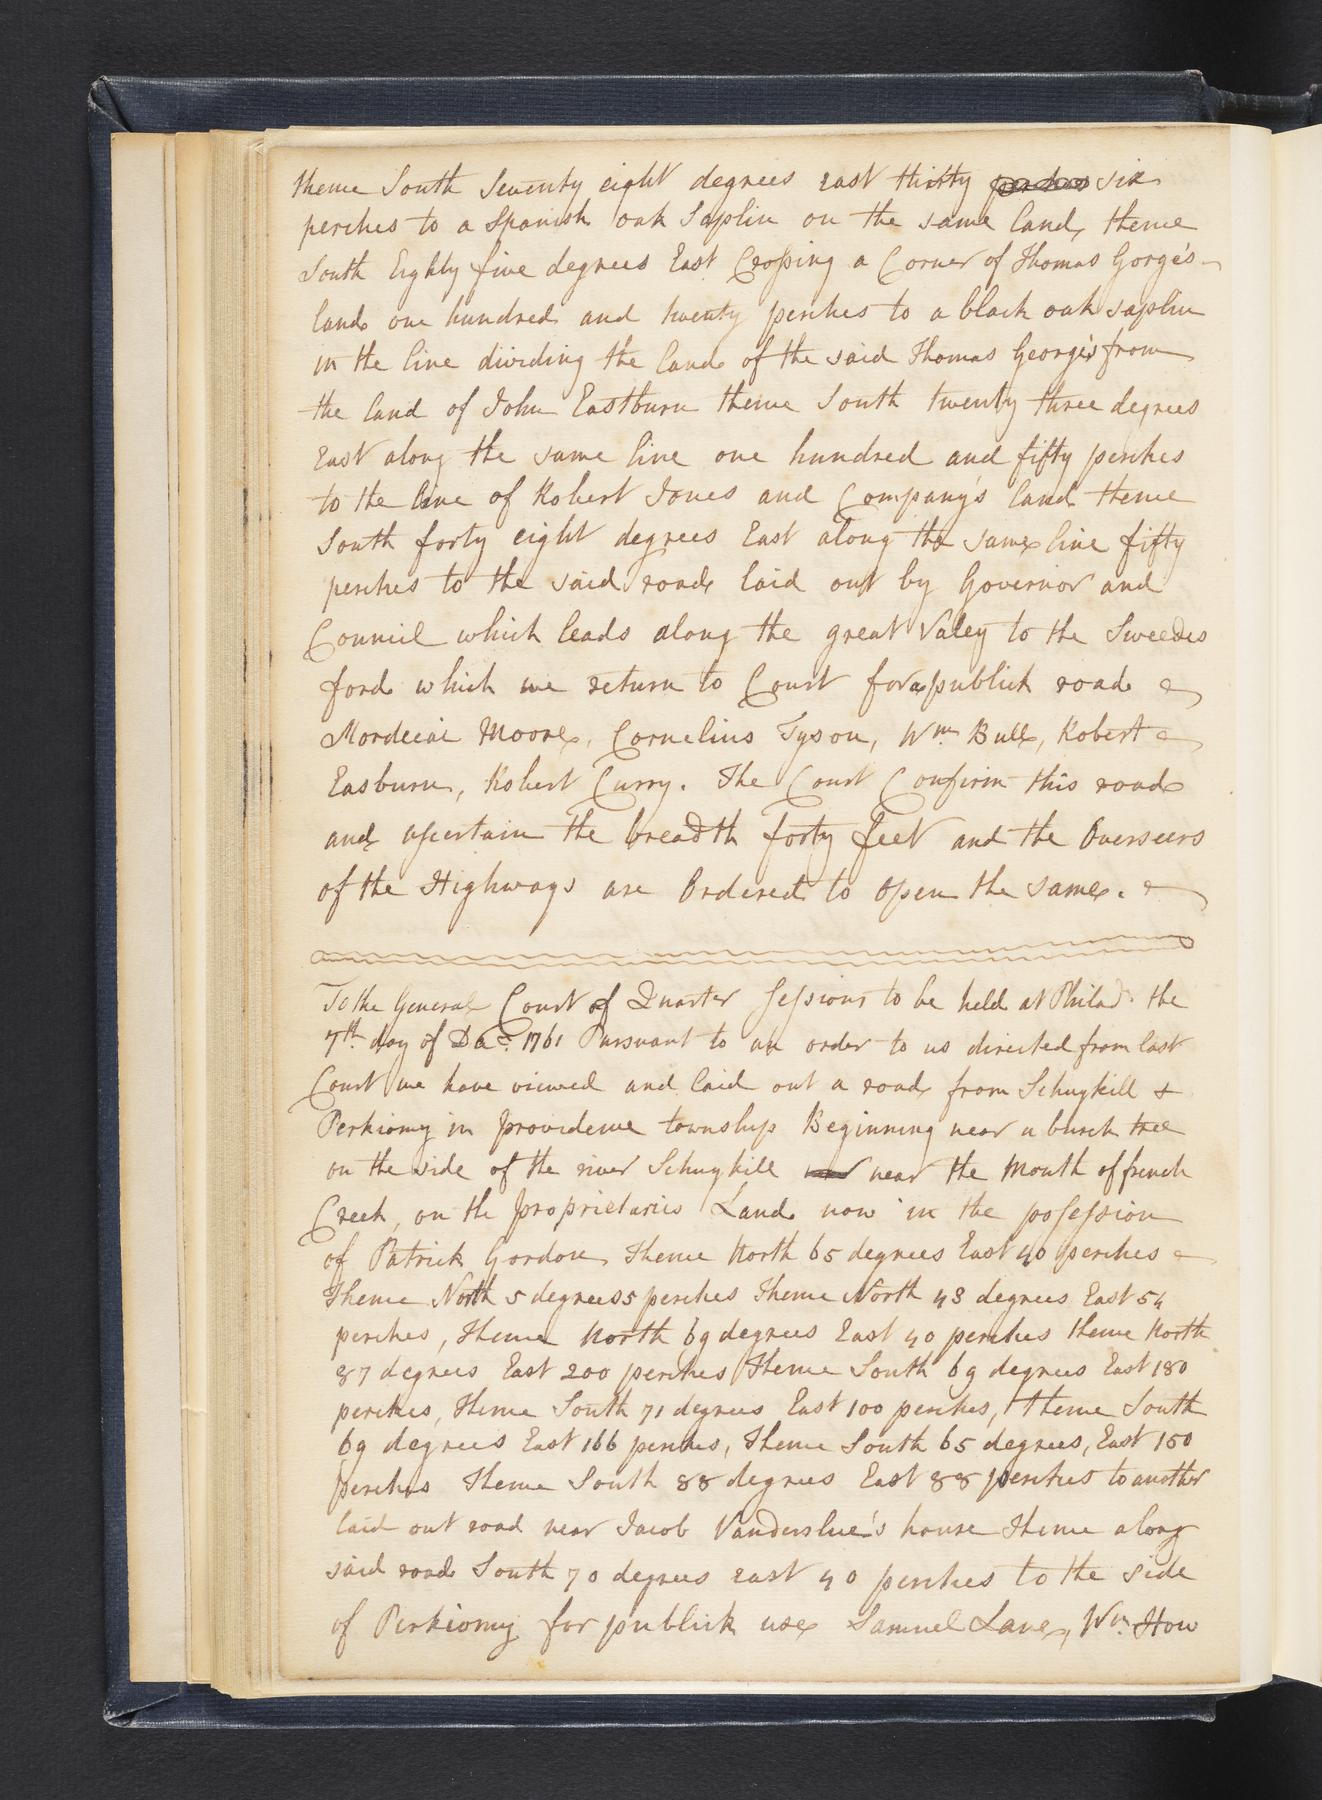 thence South Seventy eight degrees east thirty perches six
perches to a Spanish oak Saplin on the same land, thence
South Eighty five degrees East Crossing a Corner of Thomas Gorge's
land one hundred and twenty perches to a black oak saplin
in the line dividing the land of the said Thomas George's from
the land of John Eastburn thence South twenty three degrees
East along the same line one hundred and fifty perches
to the line of Robert Jones and Company's land thence
South forty eight degrees East along the same line fifty
perches to the said road laid out by Governor and
Council which leads along the great Valey to the Sweedes
ford which we return to Court for a publick road
Mordecai Moore, Cornelius Tyson, Wm. Bull, Robert
Easburn, Robert Curry. The Court Confirm this road
and ascertain the breadth forty feet and the Overseers
of the Highways are Ordered to Open the same.
To the General Court of Quarter Sessions to be held at Philad. the
7th. day of Dec. 1761 Pursuant to an order to us directed from last
Court we have viewed and laid out a road from Schuykill +
Perkiomy in providence township Beginning near a burch tree
on the side of the river Schuykill near the Mouth of french
Creek, on the proprietaries Land now in the possession
of Patrick Gordon, Thence North 65 degrees East 40 perches
Thence North 5 degrees 5 perches Thence North 43 degrees East 54
perches, Thence North 69 degrees East 40 perches thence North
87 degrees East 200 perches Thence South 69 degrees East 180
perches, Thence South 71 degrees East 100 perches, thence South
69 degrees East 166 perches, Thence South 65 degrees, East 150
perches Thence South 88 degrees East 88 perches to another
laid out road near Jacob Vanderslue's house Thence along
said road South 70 degrees east 40 perches to the side
of Perkiomy for publick use Samuel Lane, Wm. How